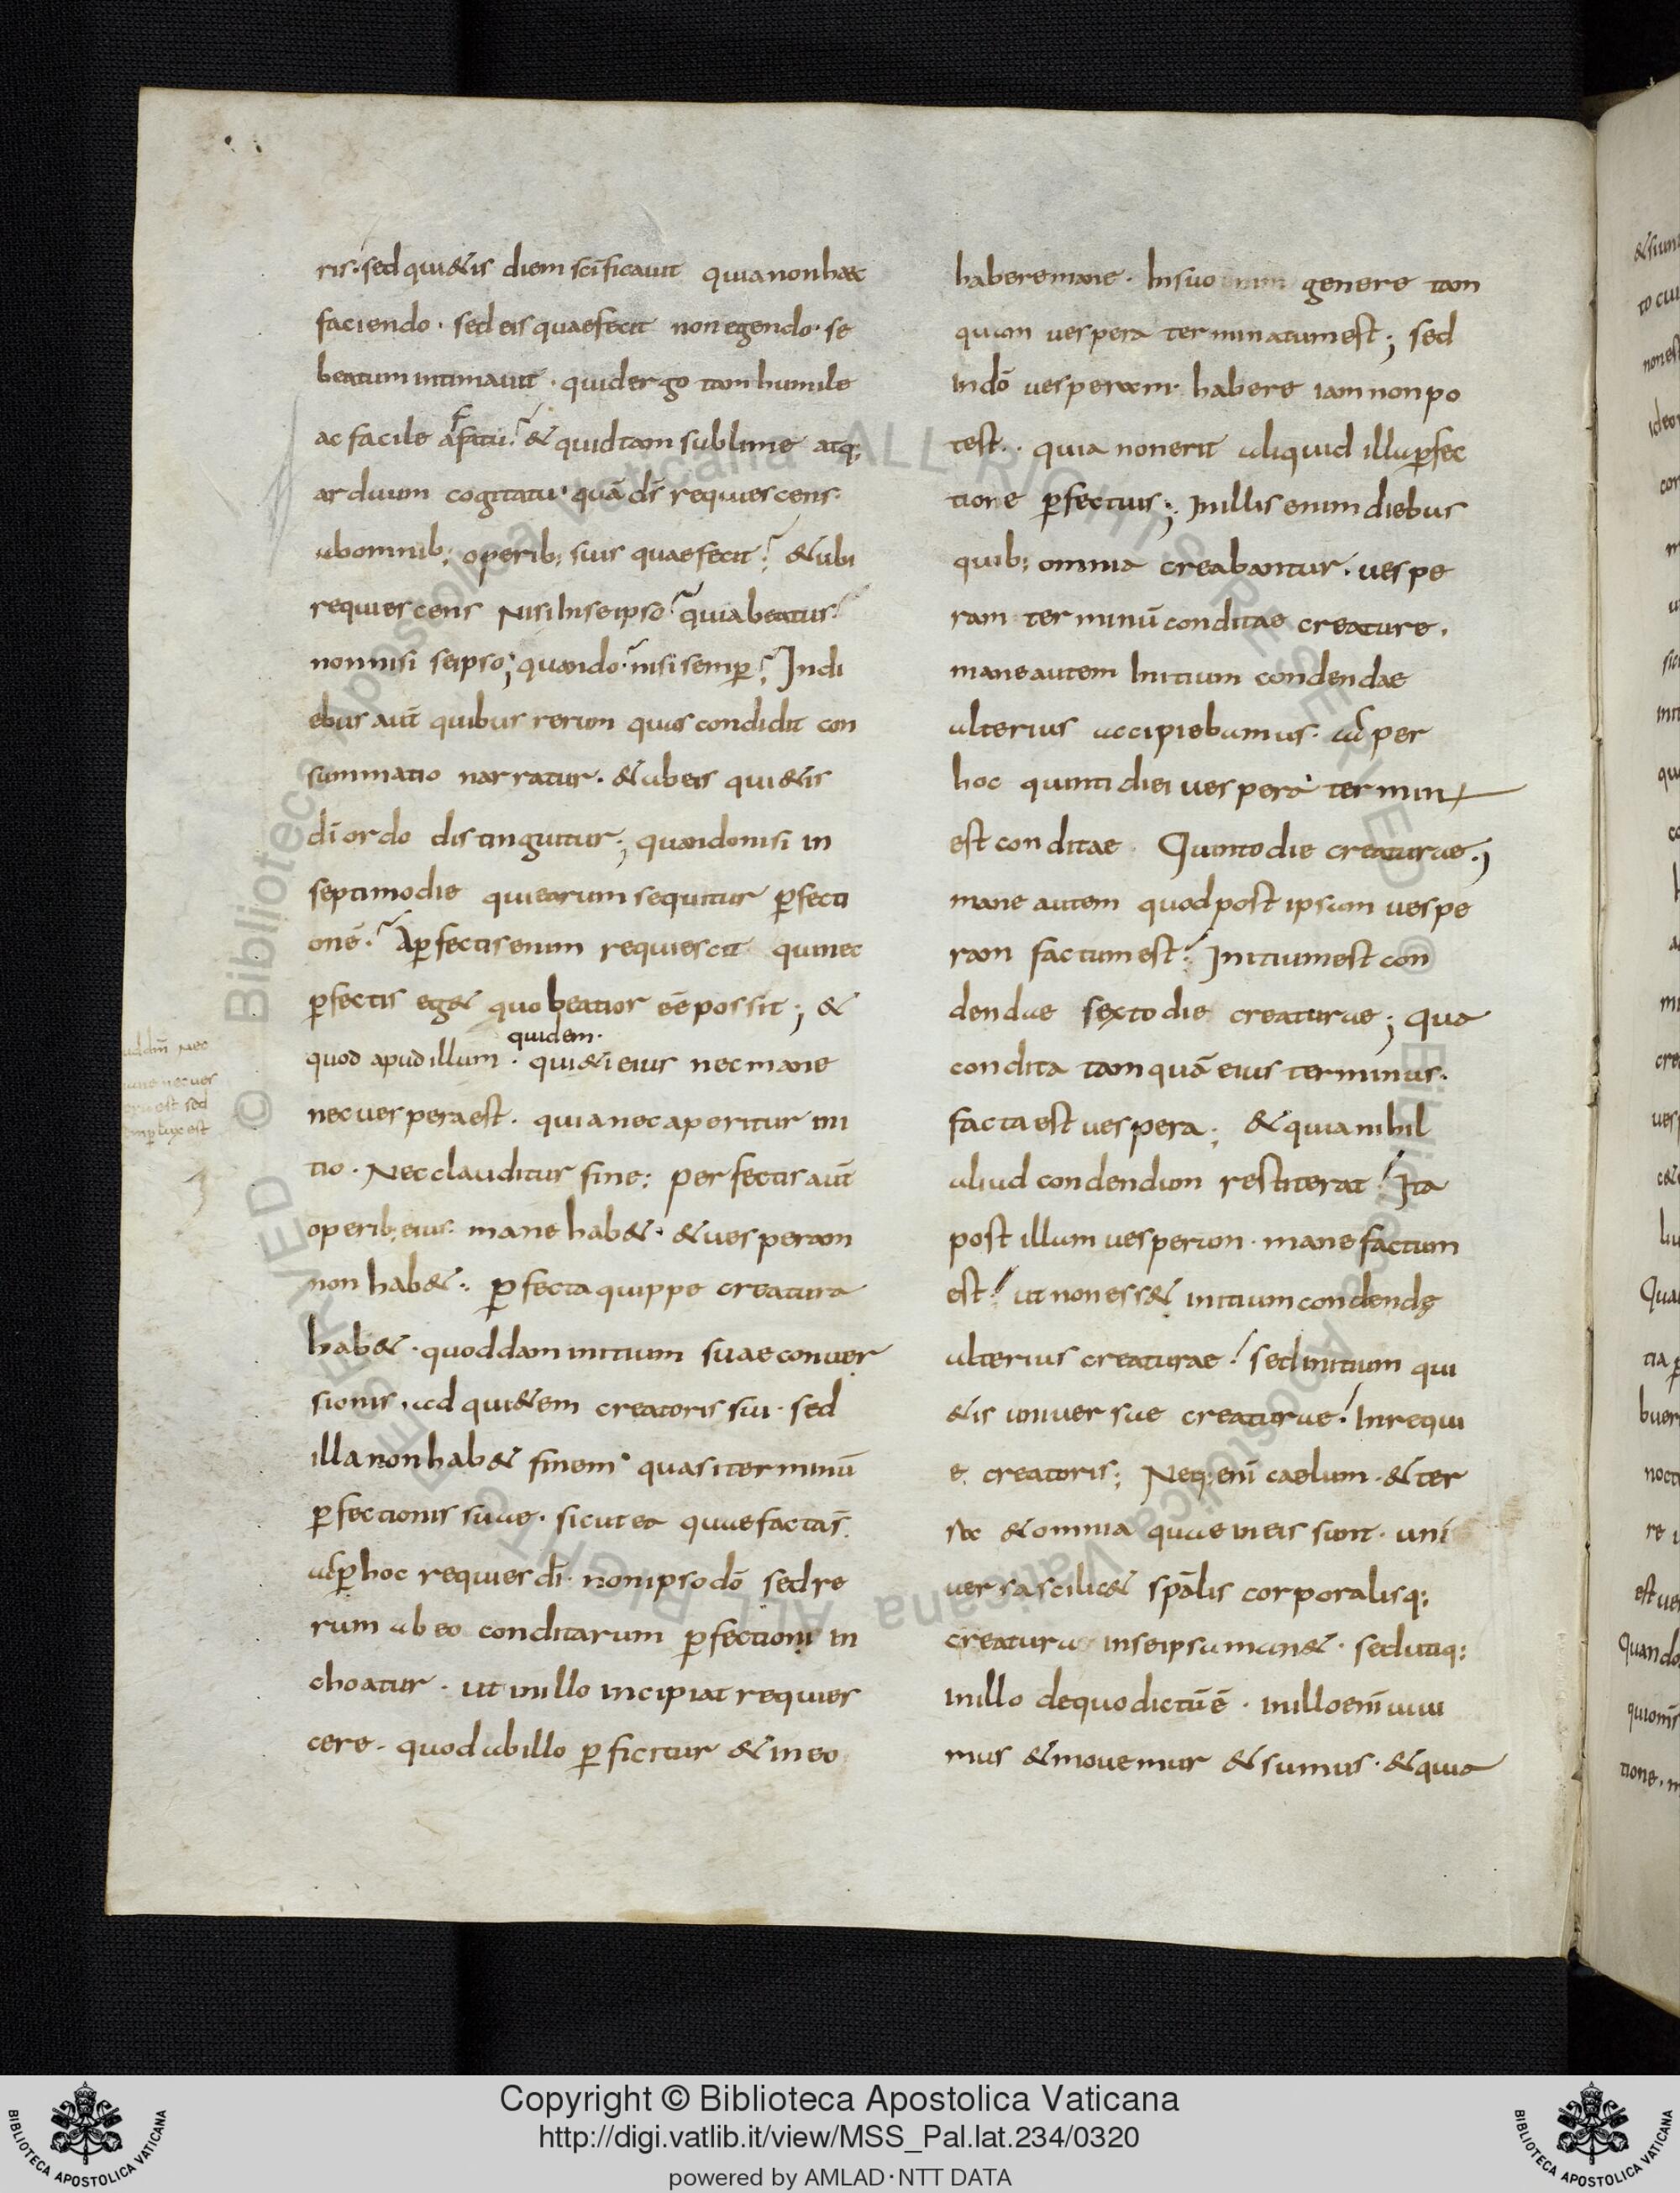 ris· sed qui&is diem scīficauit quia non haec
faciendo· sed eis quae fecit non egendo· se
beatum intimauit· quid ergo tam humile
ac facile afatu? & quid tam sublime atq;
arduum cogitatu· quā d̄s requiescens·
ab omnib; operib; suis quae fecit? & ubi
requiescens Nisi In seipso? quia beatus?
non nisi seipso; quando· nisi semp̱? In di
ebus aūt quibus rerum quas condidit con
summatio narratur· & ab eis qui&is
dī ordo distinguitur; quando nisi in
septimo die qui earum sequitur p̱fecti
onē? A p̱fectis enim requiescit qui nec
p̱fectis eg& quo beatior eē possit; &
quidem·
quod apud illum· qui&i eius nec mane
nec uespera est· quia nec aperitur ini
tio· Nec clauditur fine; perfectis aūt
operib; eius· mane hab&· & uesperam
non hab&; p̱fecta quippe creatura
hab&· quoddam initium suae conuer
sionis· ad qui&em creatoris sui· sed
illa non hab& finem· quasi terminū
p̱fectionis suae· sicut ea quae facta s̄·
ac p̱ hoc requies dī· non ipso dō sed re
rum ab eo conditarum p̱fectioni in
choatur· ut in illo incipiat requies
cere· quod ab illo p̱ficitur & in eo
uddm̄ Nec
nec ues
est sed
lux est
habere mane· In suo genere tam
quam uespera terminatum est; sed
in dō uesperam· habere iam non po
test·· quia non erit aliquid illa p̱fec
tione p̱fectius; In illis enim diebus
quib; omnia creabantur· uespe
ram terminū conditae creature·
mane autem Initium condendae
alterius accipiebamus· ac per
hoc quinti diei uespera termin
est conditae· Quinto die creaturae;
mane autem quod post ipsam uespe
ram factum est? Initium est con
dendae sexto die creaturae; qua
condita tamquā eius terminus·
facta est uespera; & quia nihil
aliud condendum restiterat? Ita
post illum uesperum· mane factum
est? ut non ess& initium condendę
alterius creaturae? sed initium qui
&is uniuersae creaturae? In requi
e creatoris; Neq; enī caelum· & ter
rae & omnia quae in eis sunt· uni
uersa scilic& spālis corporalisq;
creatura in seipsa man&· sed utiq;
in illo de quo dictū ē· in illo enī uiui
mus & mouemur & sumus· & quia
Copyright © Biblioteca Apostolica Vaticana
http://digi.vatlib.it/view/MSS_Pal.lat.234/0320
powered by AMLAD·NTT DATA
BIBLIOTECA APOSTOLICA VATICANA
BIBLIOTECA APOSTOLICA VATICANA